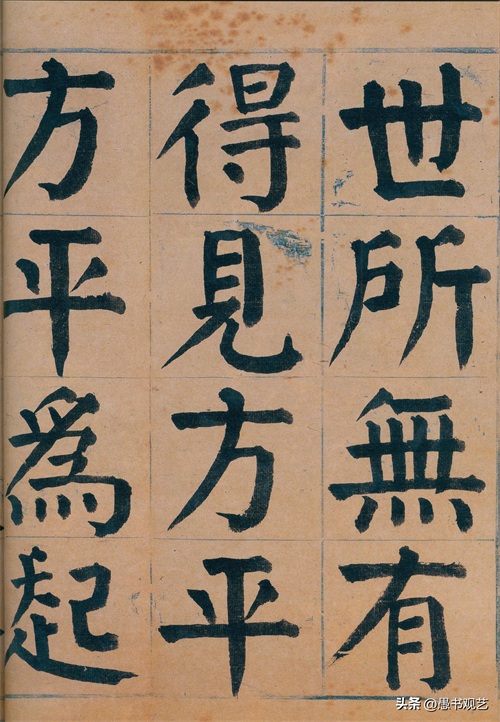 世所無有
得見方平
方平爲起
头条@愚书观艺